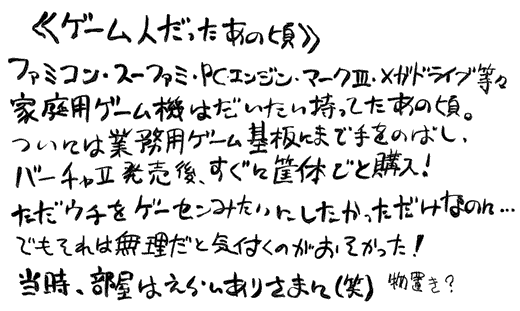 ≪ゲーム人だったあの頃≫
ファミコン・スーファミ・PCエンジン・マークⅢ・メガドライブ等々
家庭用ゲーム機はだいたい持ってたあの頃。
ついには業務用ゲーム基板にまで手をのばし、
バーチャⅡ発売後、すぐに筐体ごと購入!
ただウチをゲーセンみたいにしたかっただけなのに…
でもそれは無理だと気付くのがおそかった!
当時、部屋はえらいありさまに(笑) 物置き?